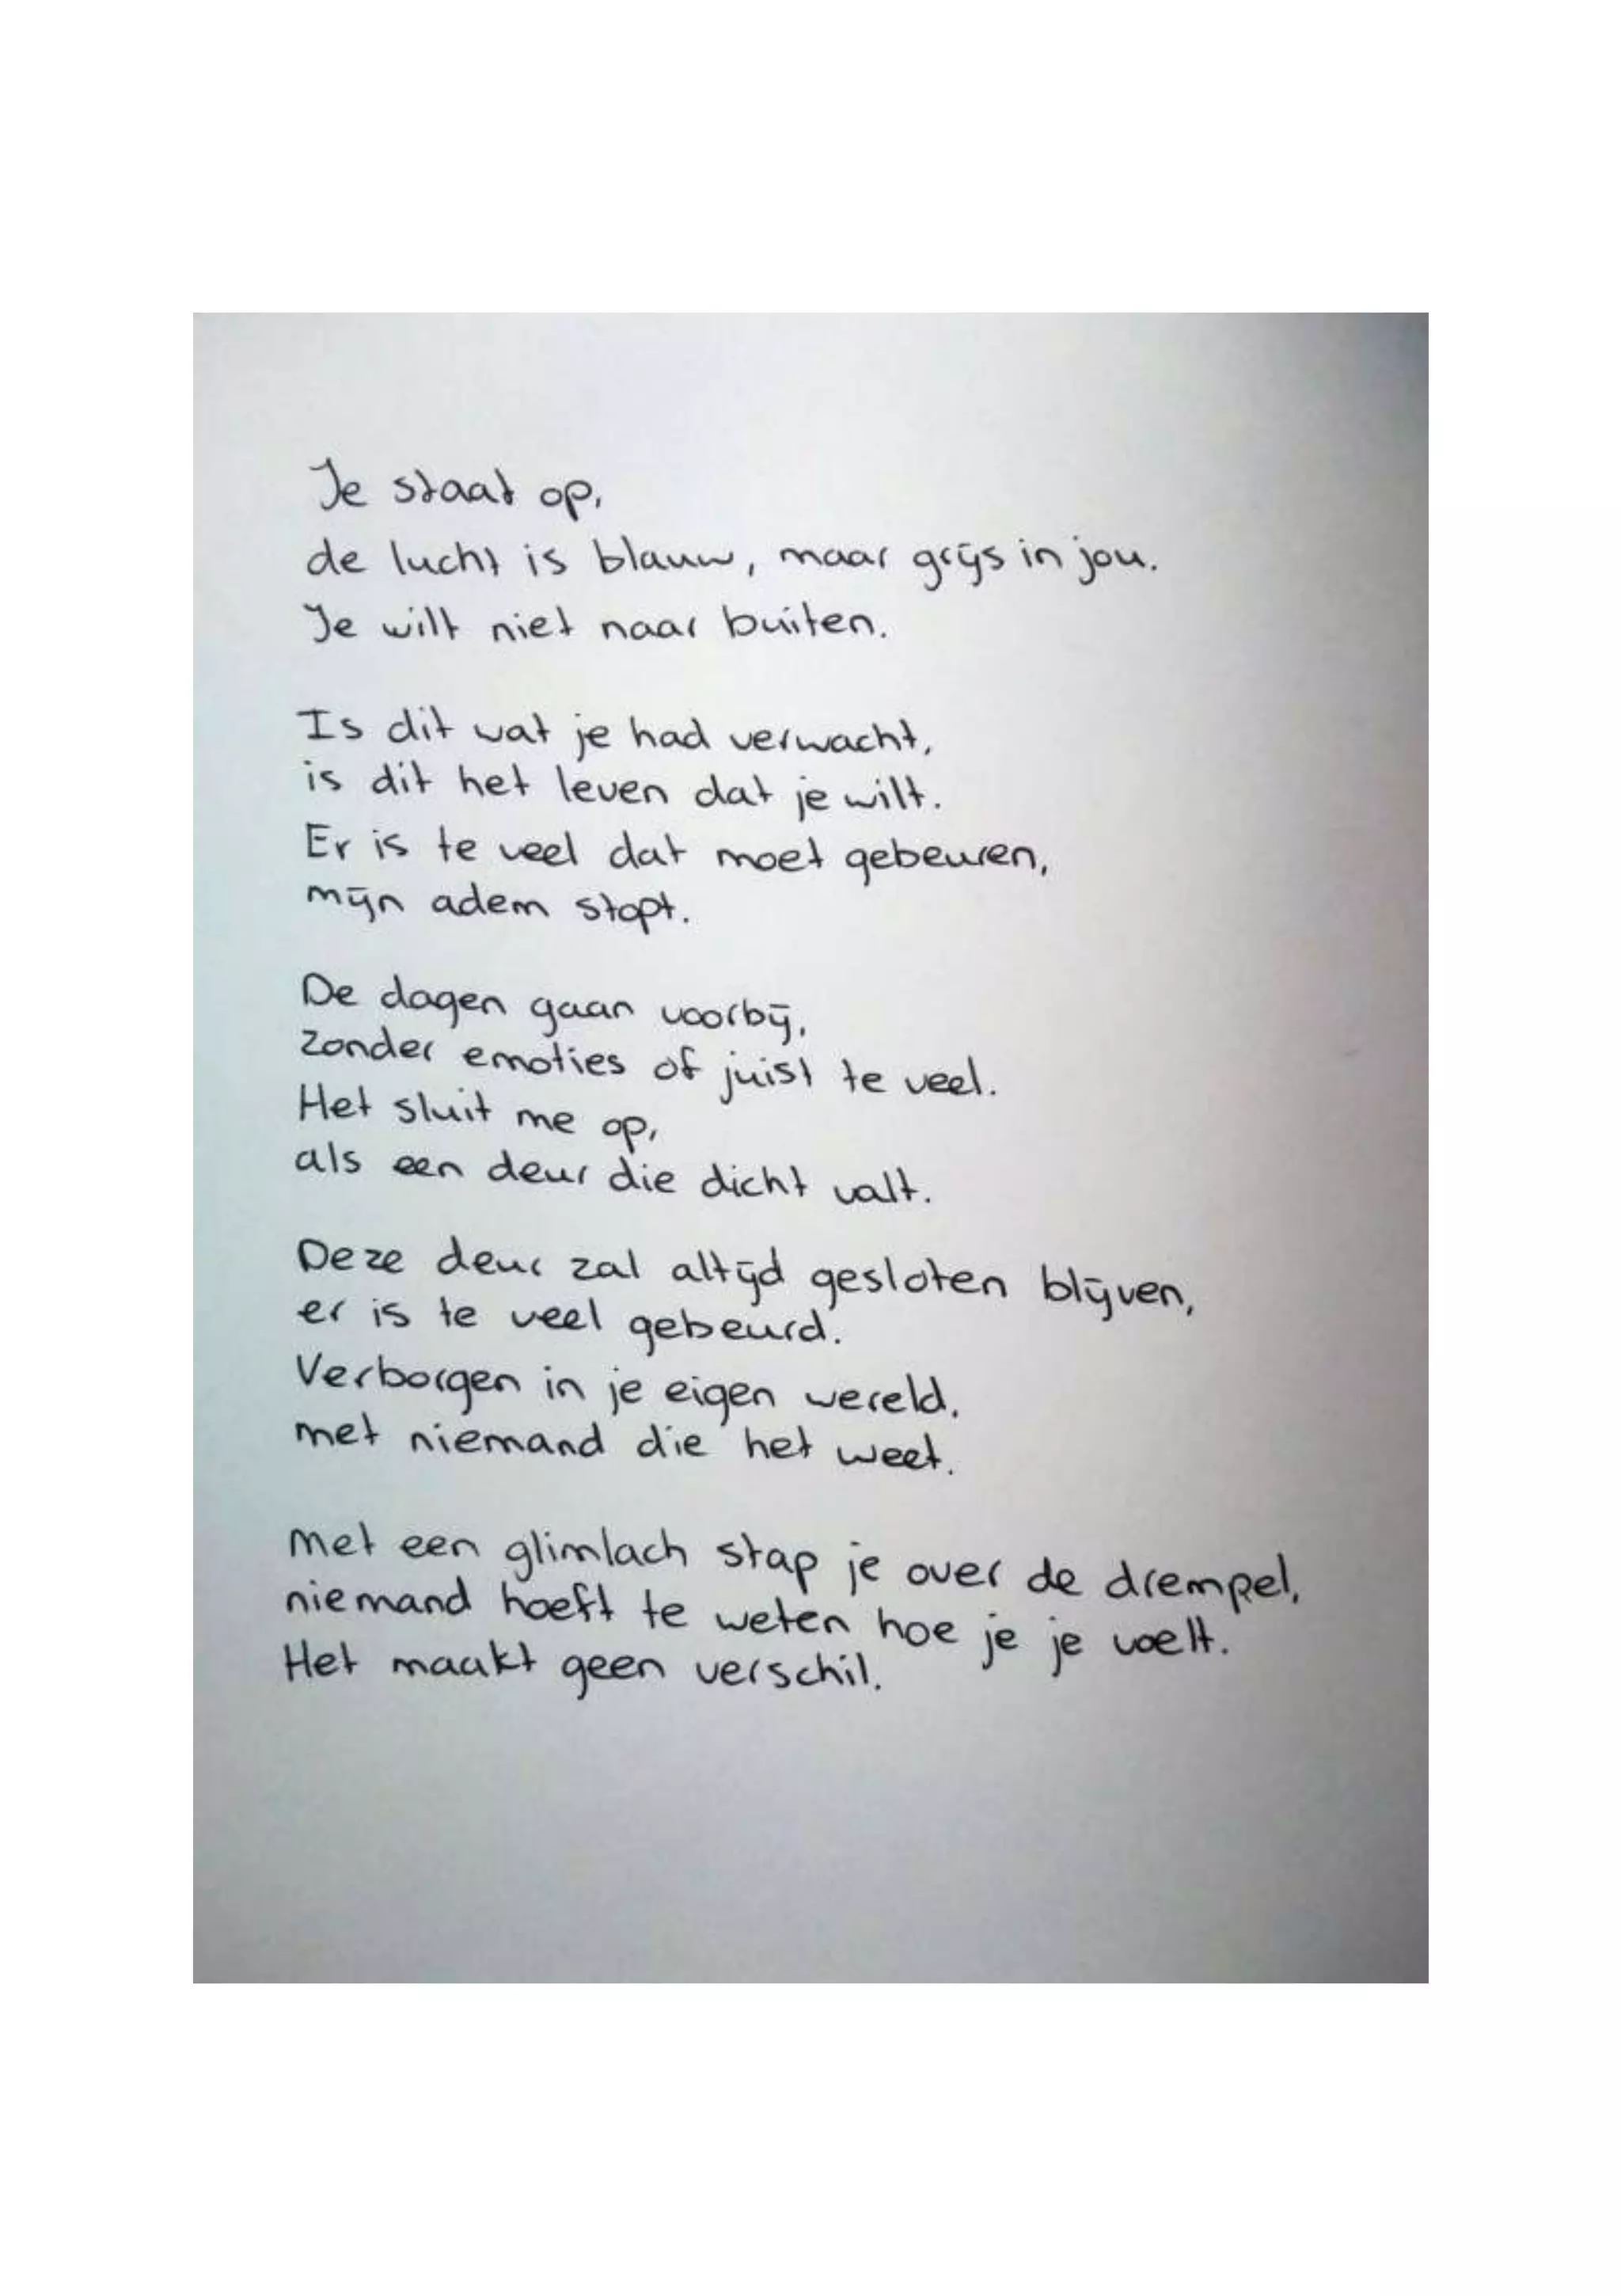 Je staat op,
de lucht is blauw, maar grijs in jou.
Je wilt niet naar buiten.
Is dit wat je had verwacht,
is dit het leven dat je wilt.
Er is te veel dat moet gebeuren,
mijn adem stopt.
De dagen gaan voorbij,
zonder emoties of juist te veel.
Het sluit me op,
als een deur die dicht valt.
Deze deur zal altijd gesloten blijven,
er is te veel gebeurd.
Verborgen in je eigen wereld,
met niemand die het weet.
Met een glimlach stap je over de drempel,
niemand hoeft te weten hoe je je voelt.
Het maakt geen verschil.